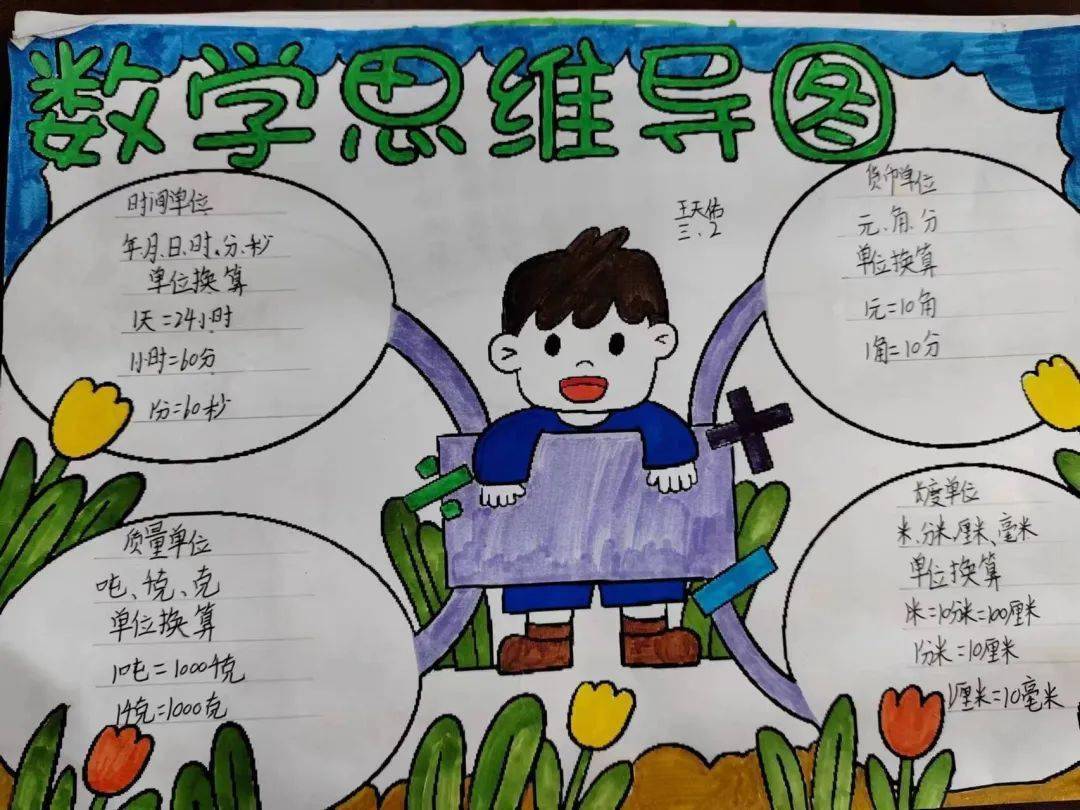 数学思维导图
王天佑
三、2
时间单位
年、月、日、时、分、秒
单位换算
1天=24小时
1小时=60分
1分=60秒
货币单位
元、角、分
单位换算
1元=10角
1角=10分
质量单位
吨、千克、克
单位换算
1吨=1000千克
1千克=1000克
长度单位
米、分米、厘米、毫米
单位换算
1米=10分米=100厘米
1分米=10厘米
1厘米=10毫米